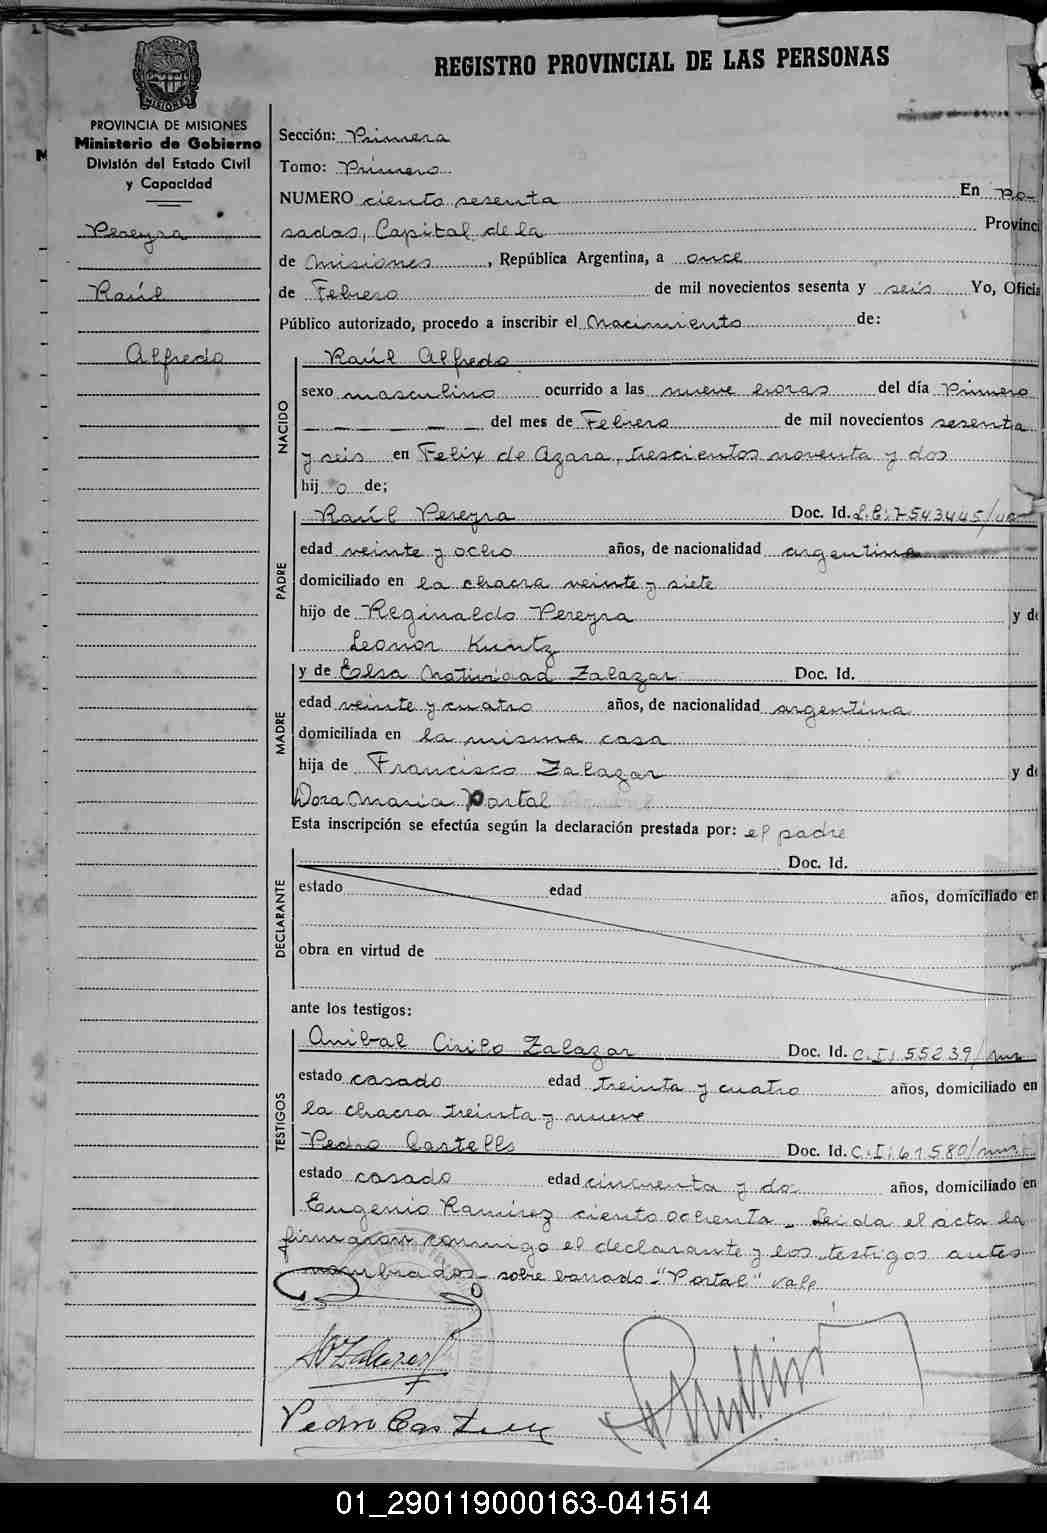 REGISTRO PROVINCIAL DE LAS PERSONAS
MISIONES
PROVINCIA DE MISIONES
Ministerio de Gobierno
División del Estado Civil
y Capacidad
Pereyra
Raúl
Alfredo
Sección: Primera
Tomo: Primero
NUMERO ciento sesenta En Po-
sadas, Capital de la Provinci
de Misiones, República Argentina, a once
de Febrero de mil novecientos sesenta y seis Yo, Oficia
Público autorizado, procedo a inscribir el Nacimiento de:
NACIDO
Raúl Alfredo
sexo masculino ocurrido a las nueve horas del día Primero
_ _ _ _ _ del mes de Febrero de mil novecientos sesenta
y seis en Felix de Azara, trescientos noventa y dos
hij o de;
PADRE
Raúl Pereyra Doc. Id. L.E: 7543445/
edad veinte y ocho años, de nacionalidad argentina
domiciliado en la chacra veinte y siete
hijo de Reginaldo Pereyra y de
Leonor Kuntz
MADRE
y de Elsa Natividad Zalazar Doc. Id.
edad veinte y cuatro años, de nacionalidad argentina
domiciliada en la misma casa
hija de Francisco Zalazar y de
Dora Maria Portal
Esta inscripción se efectúa según la declaración prestada por: el padre
DECLARANTE
Doc. Id.
estado edad años, domiciliado en
obra en virtud de
ante los testigos:
TESTIGOS
Anibal Cirilo Zalazar Doc. Id. C.I: 55239/mns
estado casado edad treinta y cuatro años, domiciliado en
la chacra treinta y nueve
Pedro Castells Doc. Id. C.I: 61580/mns
estado casado edad cincuenta y do años, domiciliado en
Eugenio Ramirez ciento ochenta - Leida el acta la
firmaron conmigo el declarante y los testigos antes
nombrados - sobre borrado - "Portal" vale
Zalazar
Pedro Castells
01_290119000163-041514